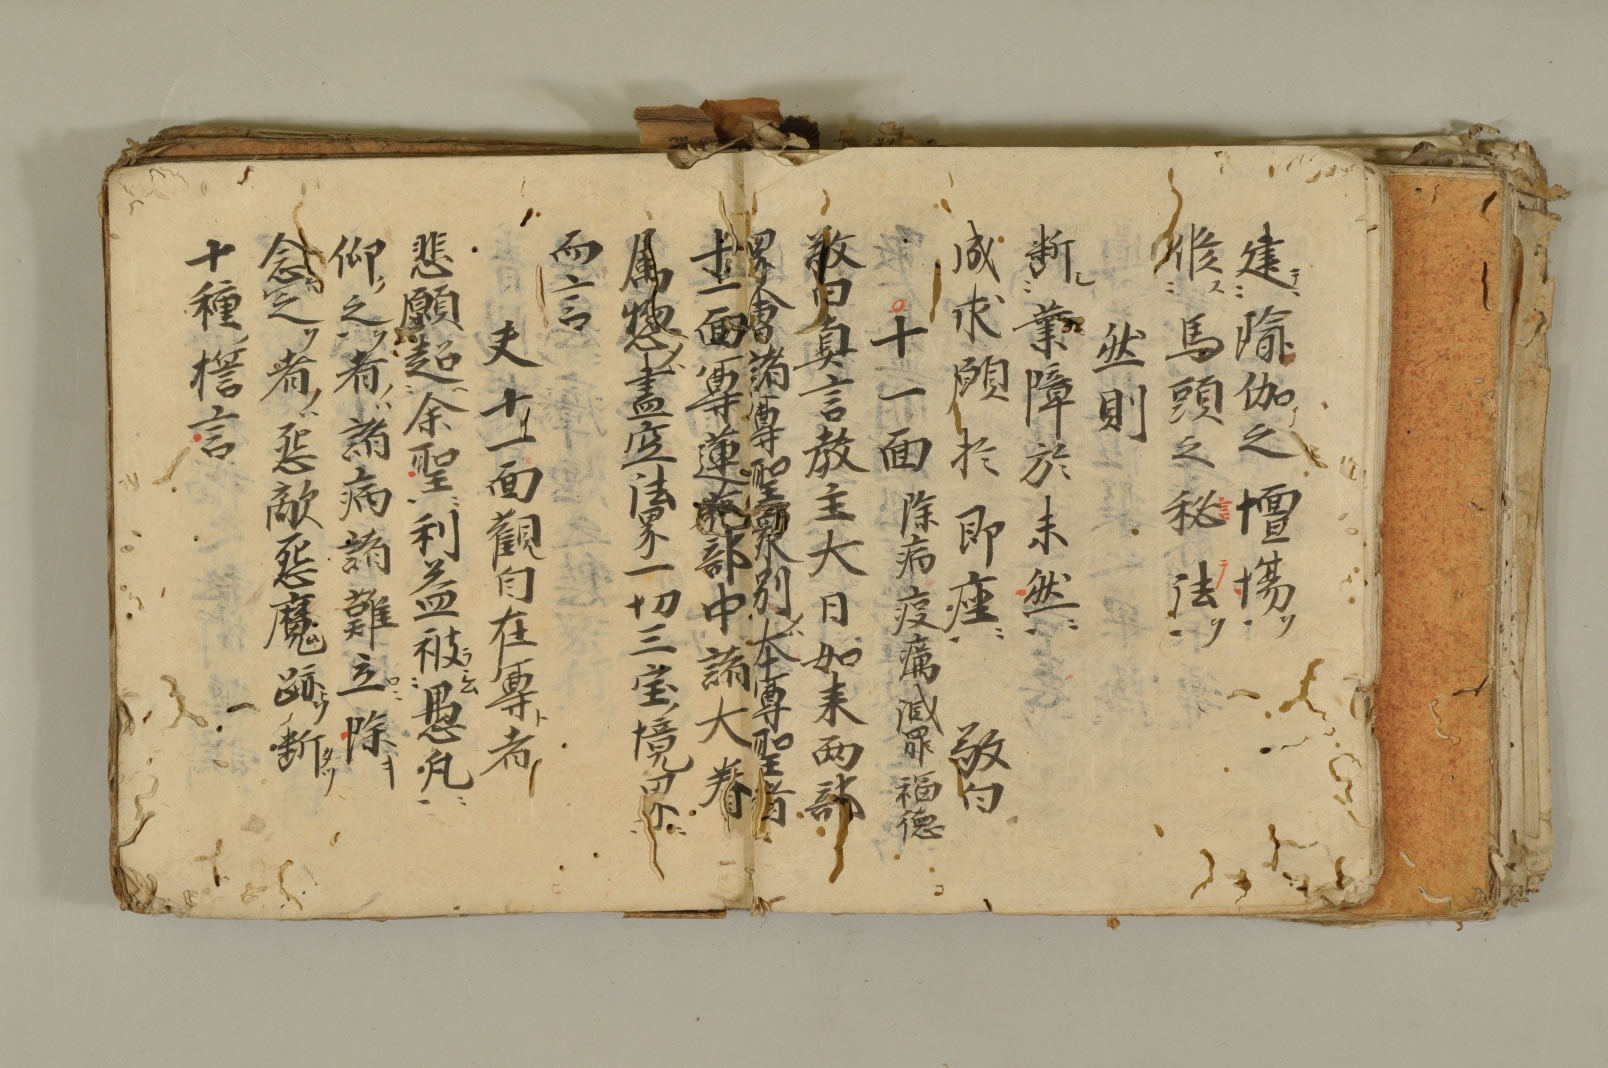 建瑜伽之壇場
修馬頭之秘法
然則
断業障於未然
成求願於即座 敬白
十一面 除病疫癘滅罪福徳
敬白真言教主大日如来両部
界會諸尊聖衆別本尊聖者
十一面尊蓮花部中諸大眷
属惣盡空法界一切三宝境界
而言
夫十一面觀自在尊者
悲願超余聖利益被愚凡
仰之者諸病諸難立除
念之者怨敵悪魔跡断
十種